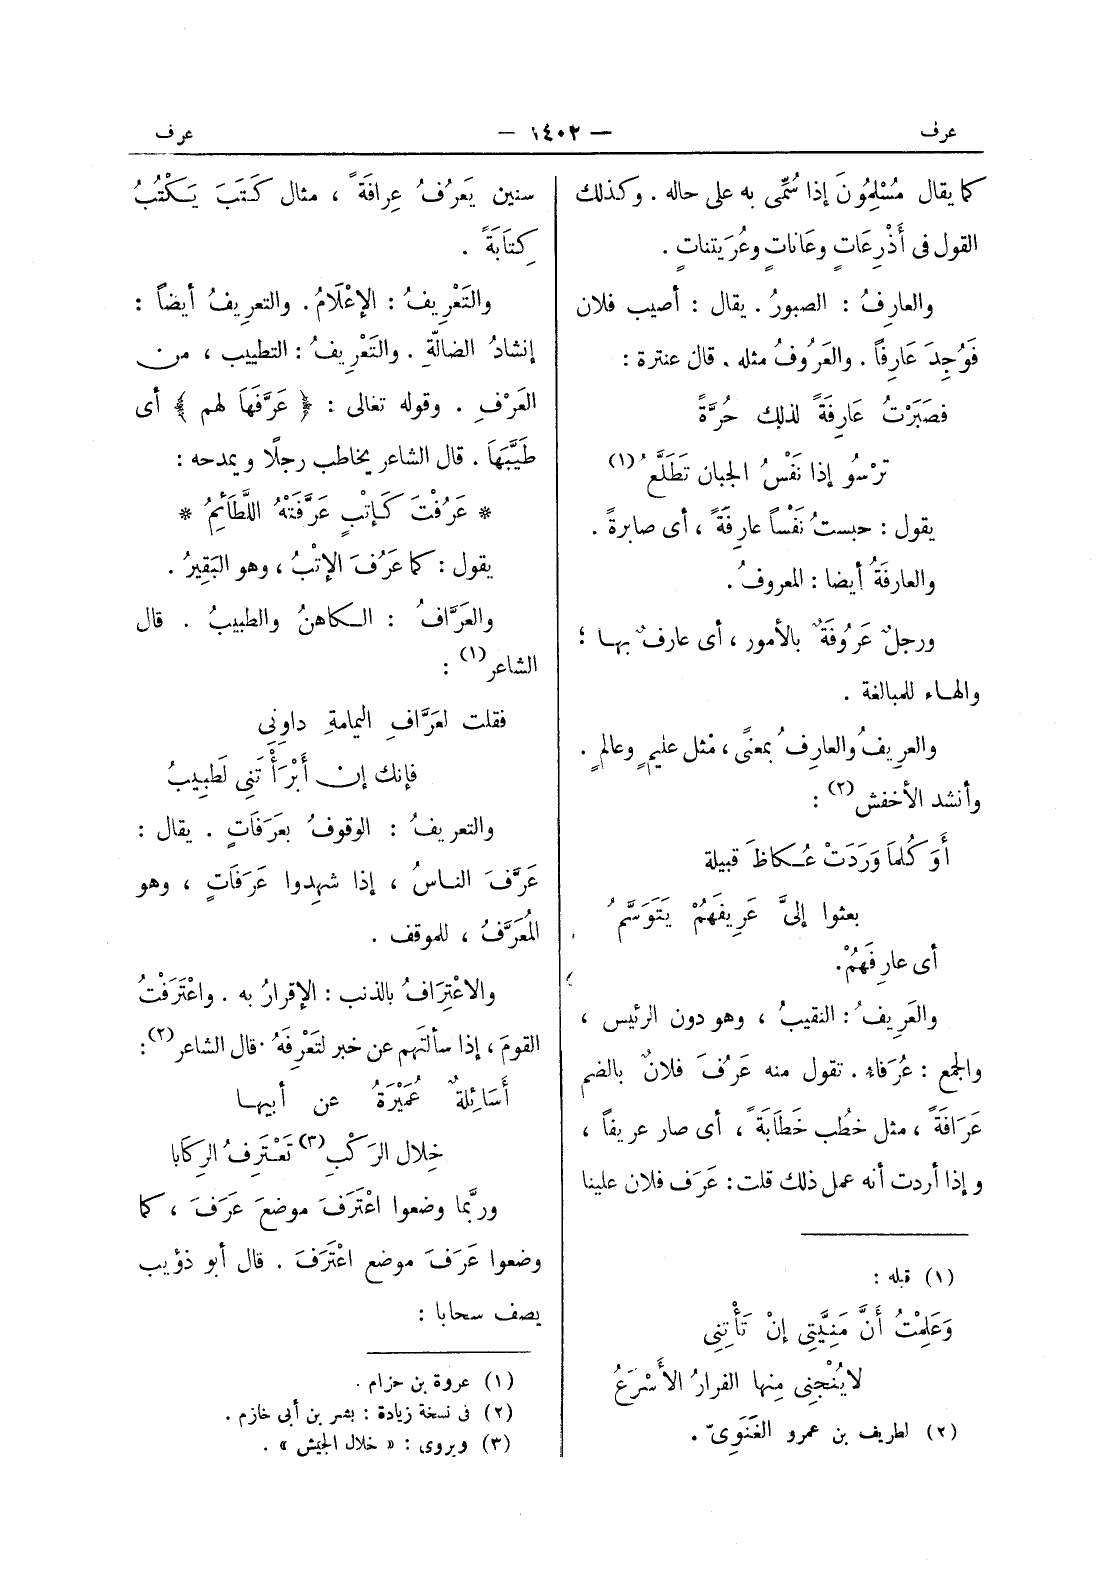 عرف
— ١٤٠٢ —
عرف
كما يقال مُسْلِمُونَ إذا سُمِّى به على حاله . وكذلك
القول فى أَذْرِعَاتٍ وعَاناتٍ وعُرَيتناتٍ .
والعارِفُ : الصبورُ . يقال : أصيب فلان
فَوُجِدَ عَارِفاً . والعَرُوفُ مثله . قال عنترة :
فصَبَرْتُ عَارِفَةً لذلك حُرَّةً
ترْسُو إذا نَفْسُ الجبان تَطَلَّعُ (١)
يقول : حبستُ نَفْساً عارِفَةً ، أى صابرةً .
والعارفَةُ أيضا : المعروفُ .
ورجلٌ عَرُوفَةٌ بالأمور ، أى عارفٌ بهـا ؛
والهـاء للمبالغة .
والعريفُ والعارِفُ بمعنًى ، مْثل عليمٍ وعالمٍ .
وأنشد الأخفش (٢) :
أَوَ كُلماَ وَرَدَتْ عُـكاظَ قبيلة
بعثوا إلىَّ عَرِيفَهُمْ يَتَوَسَّمُ
أى عارِفَهُمْ.
والعَرِيفُ : النقيبُ ، وهو دون الرئيس ،
والجمع : عُرَفاء . تقول منه عَرُفَ فلانٌ بالضم
عَرَافَةً ، مثل خطُب خَطَابَةً ، أى صار عريفاً ،
وإذا أردت أنه عمل ذلك قلت : عَرَف فلان علينا
(١) قبله :
وَعَلِمْتُ أَنَّ مَنِيَّتِى إنْ تَأْتِنِى
لا يُنْجِنِى مِنها الفرارُ الأَسْرَعُ
(٢) لطريف بن عمرو الغَنَوِىّ .
سنين يَعرُفُ عِرافَةً ، مثال كَتَبَ يَكْتُبُ
كِتَابَةً .
والتَعْرِيفُ : الإعْلَامُ. والتعريفُ أيضاً :
إنشادُ الضالّةِ . والتَعْرِيفُ : التطييب ، من
العَرْفِ . وقوله تعالى : ﴿ عَرَّفَهَا لهم ﴾ أى
طَيَّبَهَا . قال الشاعر يخاطب رجلًا ويمدحه :
* عَرُفْتَ كَإتْبٍ عَرَّفَتْهُ اللَّطَائِمُ *
يقول : كما عَرُفَ الإتْبُ ، وهو البَقِيرُ .
والعَرَّافُ : الـكاهنُ والطبيبُ . قال
الشاعر (١) :
فقلت لعَرَّافِ اليمامةِ داوِنِى
فإنك إن أَبْرَأْتَنِى لَطبِيبُ
والتعريفُ : الوقوفُ بعَرَفَاتٍ . يقال :
عَرَّفَ الناسُ ، إذا شهِدوا عَرَفَاتٍ ، وهو
المُعَرَّفُ ، للموقف .
والاعْتِرَافُ بالذنب : الإقرارُ به . واعْتَرَفْتُ
القومَ ، إذا سألتَهم عن خبر لتَعْرِفَهُ . قال الشاعر (٢) :
أَسَائِلةٌ عُمَيْرَةُ عن أبيهـا
خِلال الرَكْبِ (٣) تَعْتَرِفُ الرِكَابا
وربَّما وضعوا اعْتَرَفَ موضعَ عَرَفَ ، كما
وضعوا عَرَفَ موضع اعْتَرَفَ . قال أبو ذؤيب
يصف سحابا :
(١) عروة بن حزام .
(٢) فى نسخة زيادة : بشر بن أبى خازم .
(٣) ويروى : « خلال الجيش » .